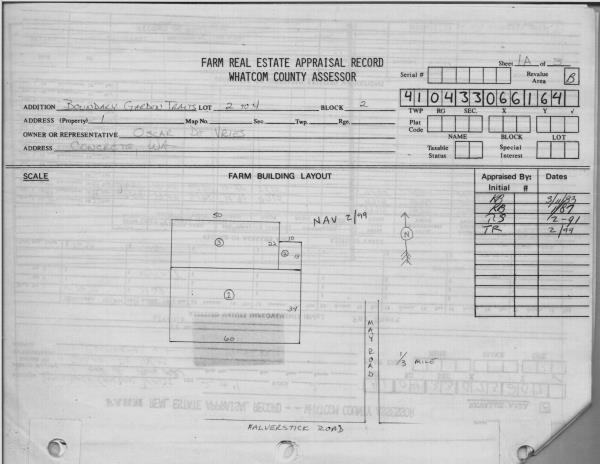 FARM REAL ESTATE APPRAISAL RECORD
WHATCOM COUNTY ASSESSOR
Sheet 1A of
Serial #
Revalue Area B
4 1 0 4 3 3 0 6 6 1 6 4
TWP RG SEC. X Y √
ADDITION BOUNDARY GARDEN TRACTS LOT 2 TO 4 BLOCK 2
ADDRESS (Property) 1 Map No. Sec. Twp. Rge.
Plat Code
NAME BLOCK LOT
OWNER OR REPRESENTATIVE OSCAR DE VRIES
ADDRESS CONCRETE, WA
Taxable Status
Special Interest
SCALE
FARM BUILDING LAYOUT
Appraised By: Dates
Initial #
3/11/83
1/87
2-91
TR 2/99
NAV 2/99
N
50
3
22
10
2
1
34
60
MAY ROAD
1/3 MILE
HALVERSTICK ROAD